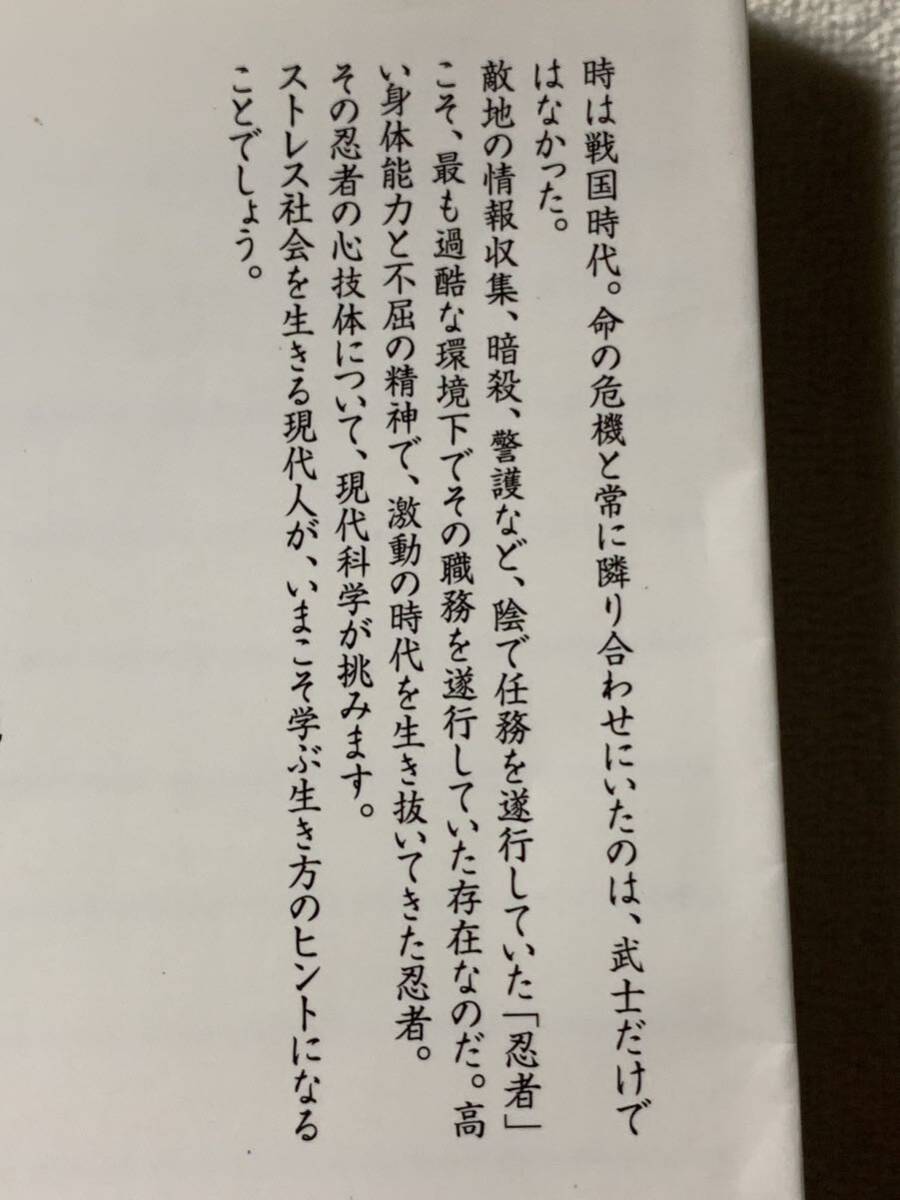 時は戦国時代。命の危機と常に隣り合わせにいたのは、武士だけで
はなかった。
敵地の情報収集、暗殺、警護など、陰で任務を遂行していた「忍者」
こそ、最も過酷な環境下でその職務を遂行していた存在なのだ。高
い身体能力と不屈の精神で、激動の時代を生き抜いてきた忍者。
その忍者の心技体について、現代科学が挑みます。
ストレス社会を生きる現代人が、いまこそ学ぶ生き方のヒントになる
ことでしょう。